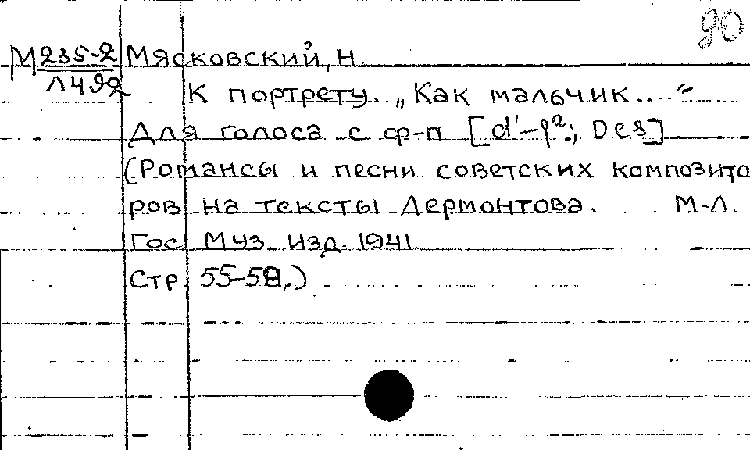 90
М 235-2 Мясковский, Н.
Л492
К портрету. „Как мальчик..."
Для голоса с ф-п [d'-f²; Des]
(Романсы и песни советских композито
ров на тексты Лермонтова. М-Л.
Гос. Муз. изд. 1941
Стр. 55-58.)